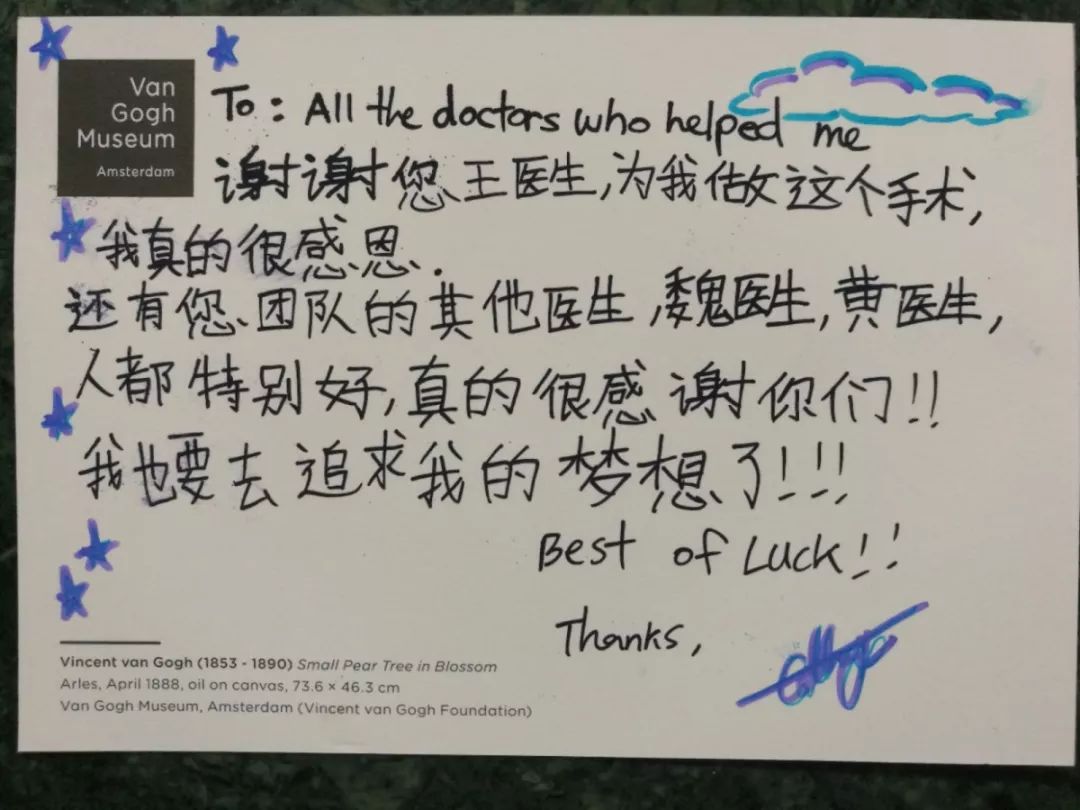 Van
Gogh
Museum
Amsterdam
To: All the doctors who helped me
谢谢您王医生,为我做这个手术,
我真的很感恩.
还有您团队的其他医生,魏医生,黄医生,
人都特别好,真的很感谢你们!!
我也要去追求我的梦想了!!!
Best of Luck!!
Thanks,
Vincent van Gogh (1853 - 1890) Small Pear Tree in Blossom
Arles, April 1888, oil on canvas, 73.6 × 46.3 cm
Van Gogh Museum, Amsterdam (Vincent van Gogh Foundation)